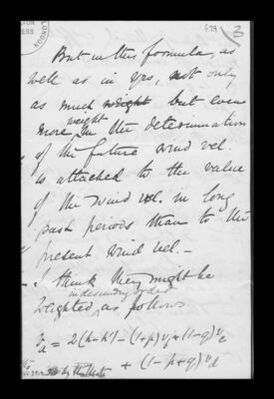 LONDON
3
But in this formula, as
well as in yrs, not only
as much weight but even
more weight in the determination
of the future wind vel.
is attached to the value
of the wind vel. in long
past periods than to the
present wind vel. —
I think they might be
in descending order
weighted, as follows
= 2(h-h') - (1+p)v + (1-q)v
+ (1-p+q)v